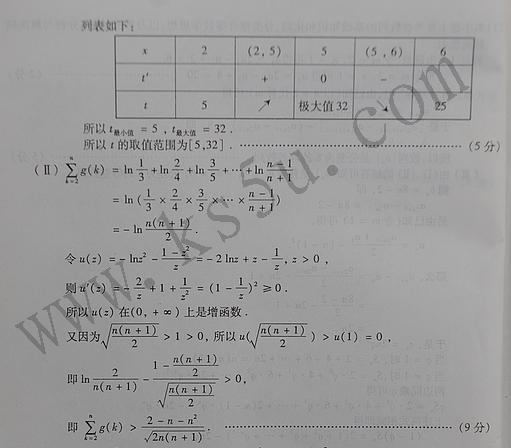 列表如下：
x 2 (2,5) 5 (5,6) 6
t′ + 0 −
t 5 ↗ 极大值32 ↘ 25
所以 t最小值 = 5 , t最大值 = 32 .
所以 t 的取值范围为[5,32] . ……………………………… (5分)
(Ⅱ) ∑_{k=2}^{n} g(k) = ln 1/3 + ln 2/4 + ln 3/5 + ⋯ + ln (n−1)/(n+1)
= ln ( 1/3 × 2/4 × 3/5 × ⋯ × (n−1)/(n+1) )
= −ln n(n+1)/2 .
令 u(z) = −lnz² − (1−z²)/z = −2lnz + z − 1/z , z > 0 ,
则 u′(z) = −2/z + 1 + 1/z² = (1 − 1/z)² ≥ 0 .
所以 u(z) 在(0, +∞) 上是增函数 .
又因为 √(n(n+1)/2) > 1 > 0, 所以 u(√(n(n+1)/2)) > u(1) = 0 ,
即 ln 2/(n(n+1)) − (1 − n(n+1)/2)/√(n(n+1)/2) > 0,
即 ∑_{k=2}^{n} g(k) > (2−n−n²)/√(2n(n+1)) . ……………………………… (9分)
www.ks5u.com